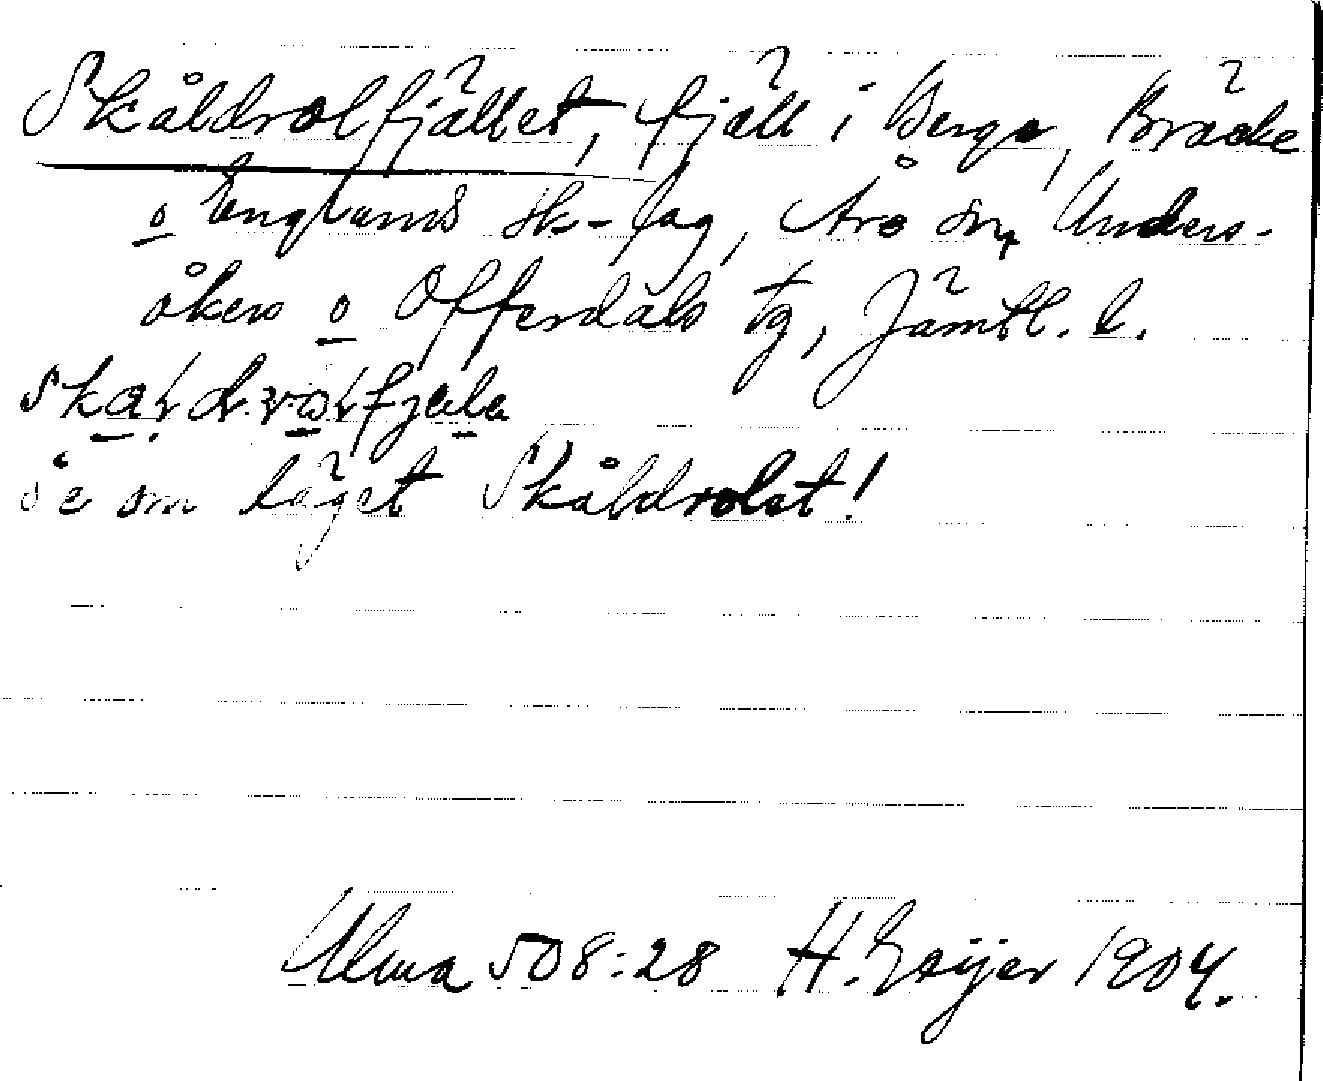 Skåldrolfjället, fjäll i Bergs, Bräcke
o Englands sk-lag, Åre sn, Unders-
åkers o Offerdals tg, Jämtl. l.
Skaldrolfjæla
Se om läget Skåldrolet!
Ulma 508:28 H. Geijer 1904.